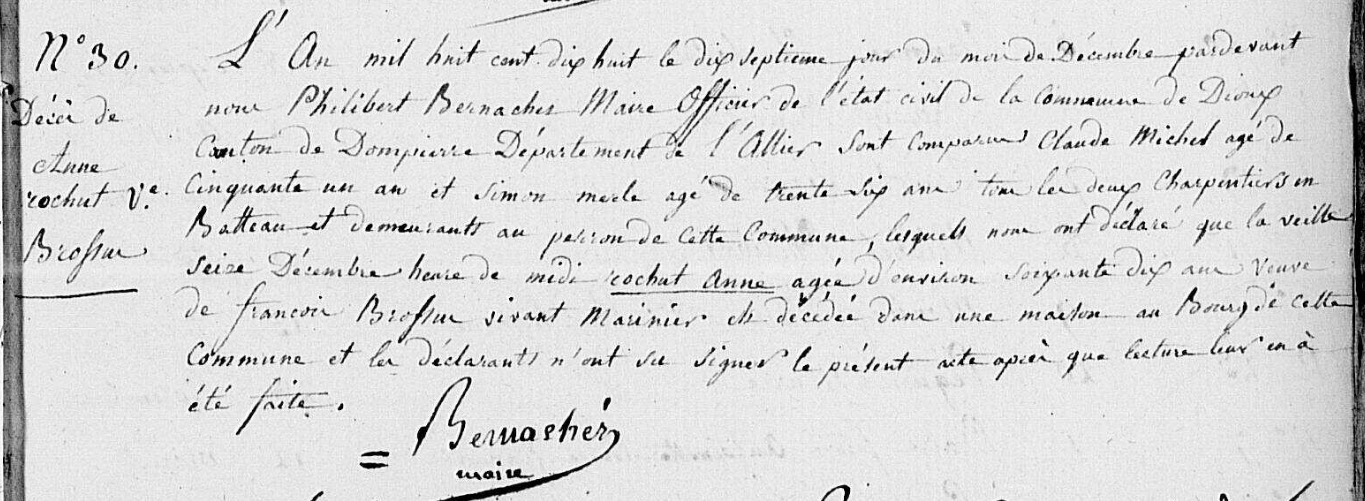 N° 30.
Décès de
Anne
rochut Ve.
Brossus
L'An mil huit cent dix huit le dix septieme jour du mois de Décembre pardevant
nous Philibert Bernachez Maire Officier de l'état civil de la Commune de Dioux
Canton de Dompierre Département de l'Allier sont comparus Claude Michel agé de
Cinquante un an et Simon merle agé de trente Six ans tous les deux Charpentiers en
Batteau et demeurants au perron de cette Commune, lesquels nous ont déclaré que la veille
seize Décembre heure de midi rochut Anne agée d'environ soixante dix ans Veuve
de françois Brossus vivant Marinier est décédée dans une maison au Bourg de cette
Commune et les déclarants n'ont su signer le présent acte après que lecture leur en à
été faite.
= Bernachéz
maire